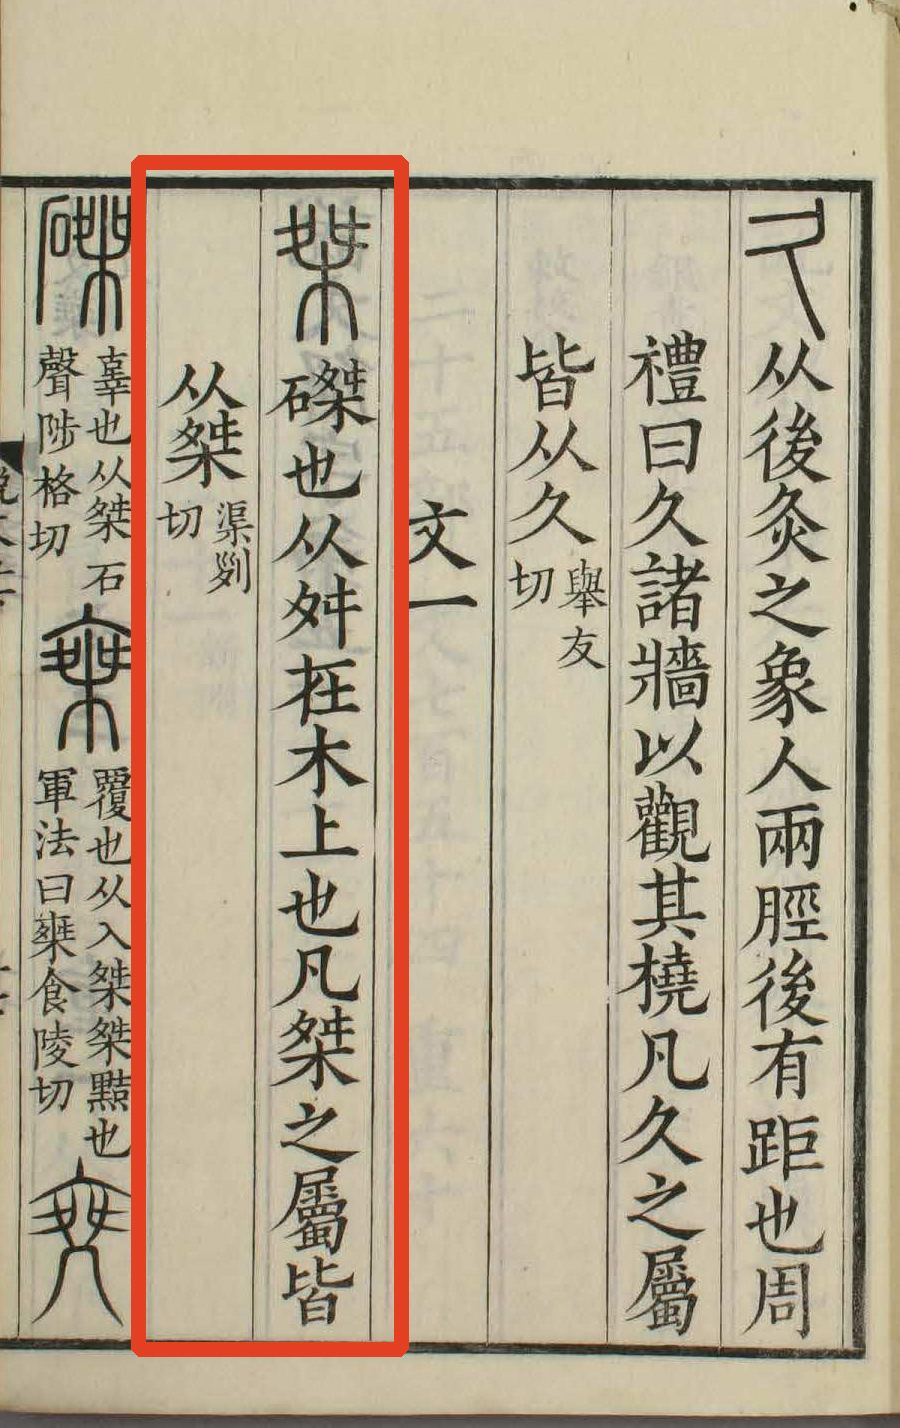 久从後灸之象人兩脛後有距也周
禮曰久諸牆以觀其橈凡久之屬
皆从久舉友切
文一
桀磔也从舛在木上也凡桀之屬皆
从桀渠列切
磔辜也从桀石聲陟格切椉覆也从入桀桀黠也軍法曰椉食陵切